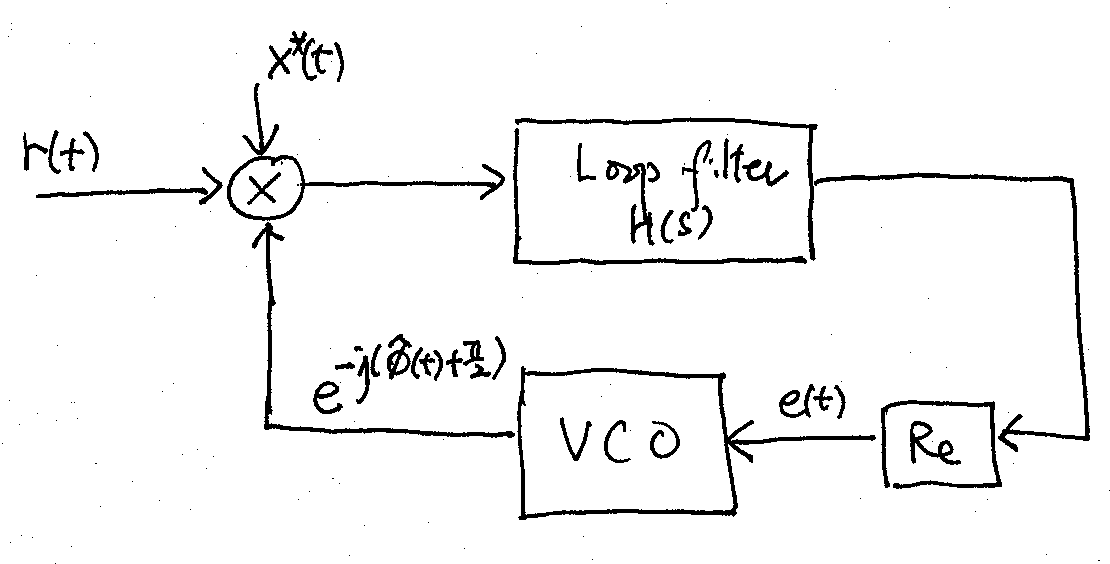 x*(t)
r(t)
×
Loop filter
H(s)
e^{-j(φ̂(t)+π/2)}
VCO
e(t)
Re